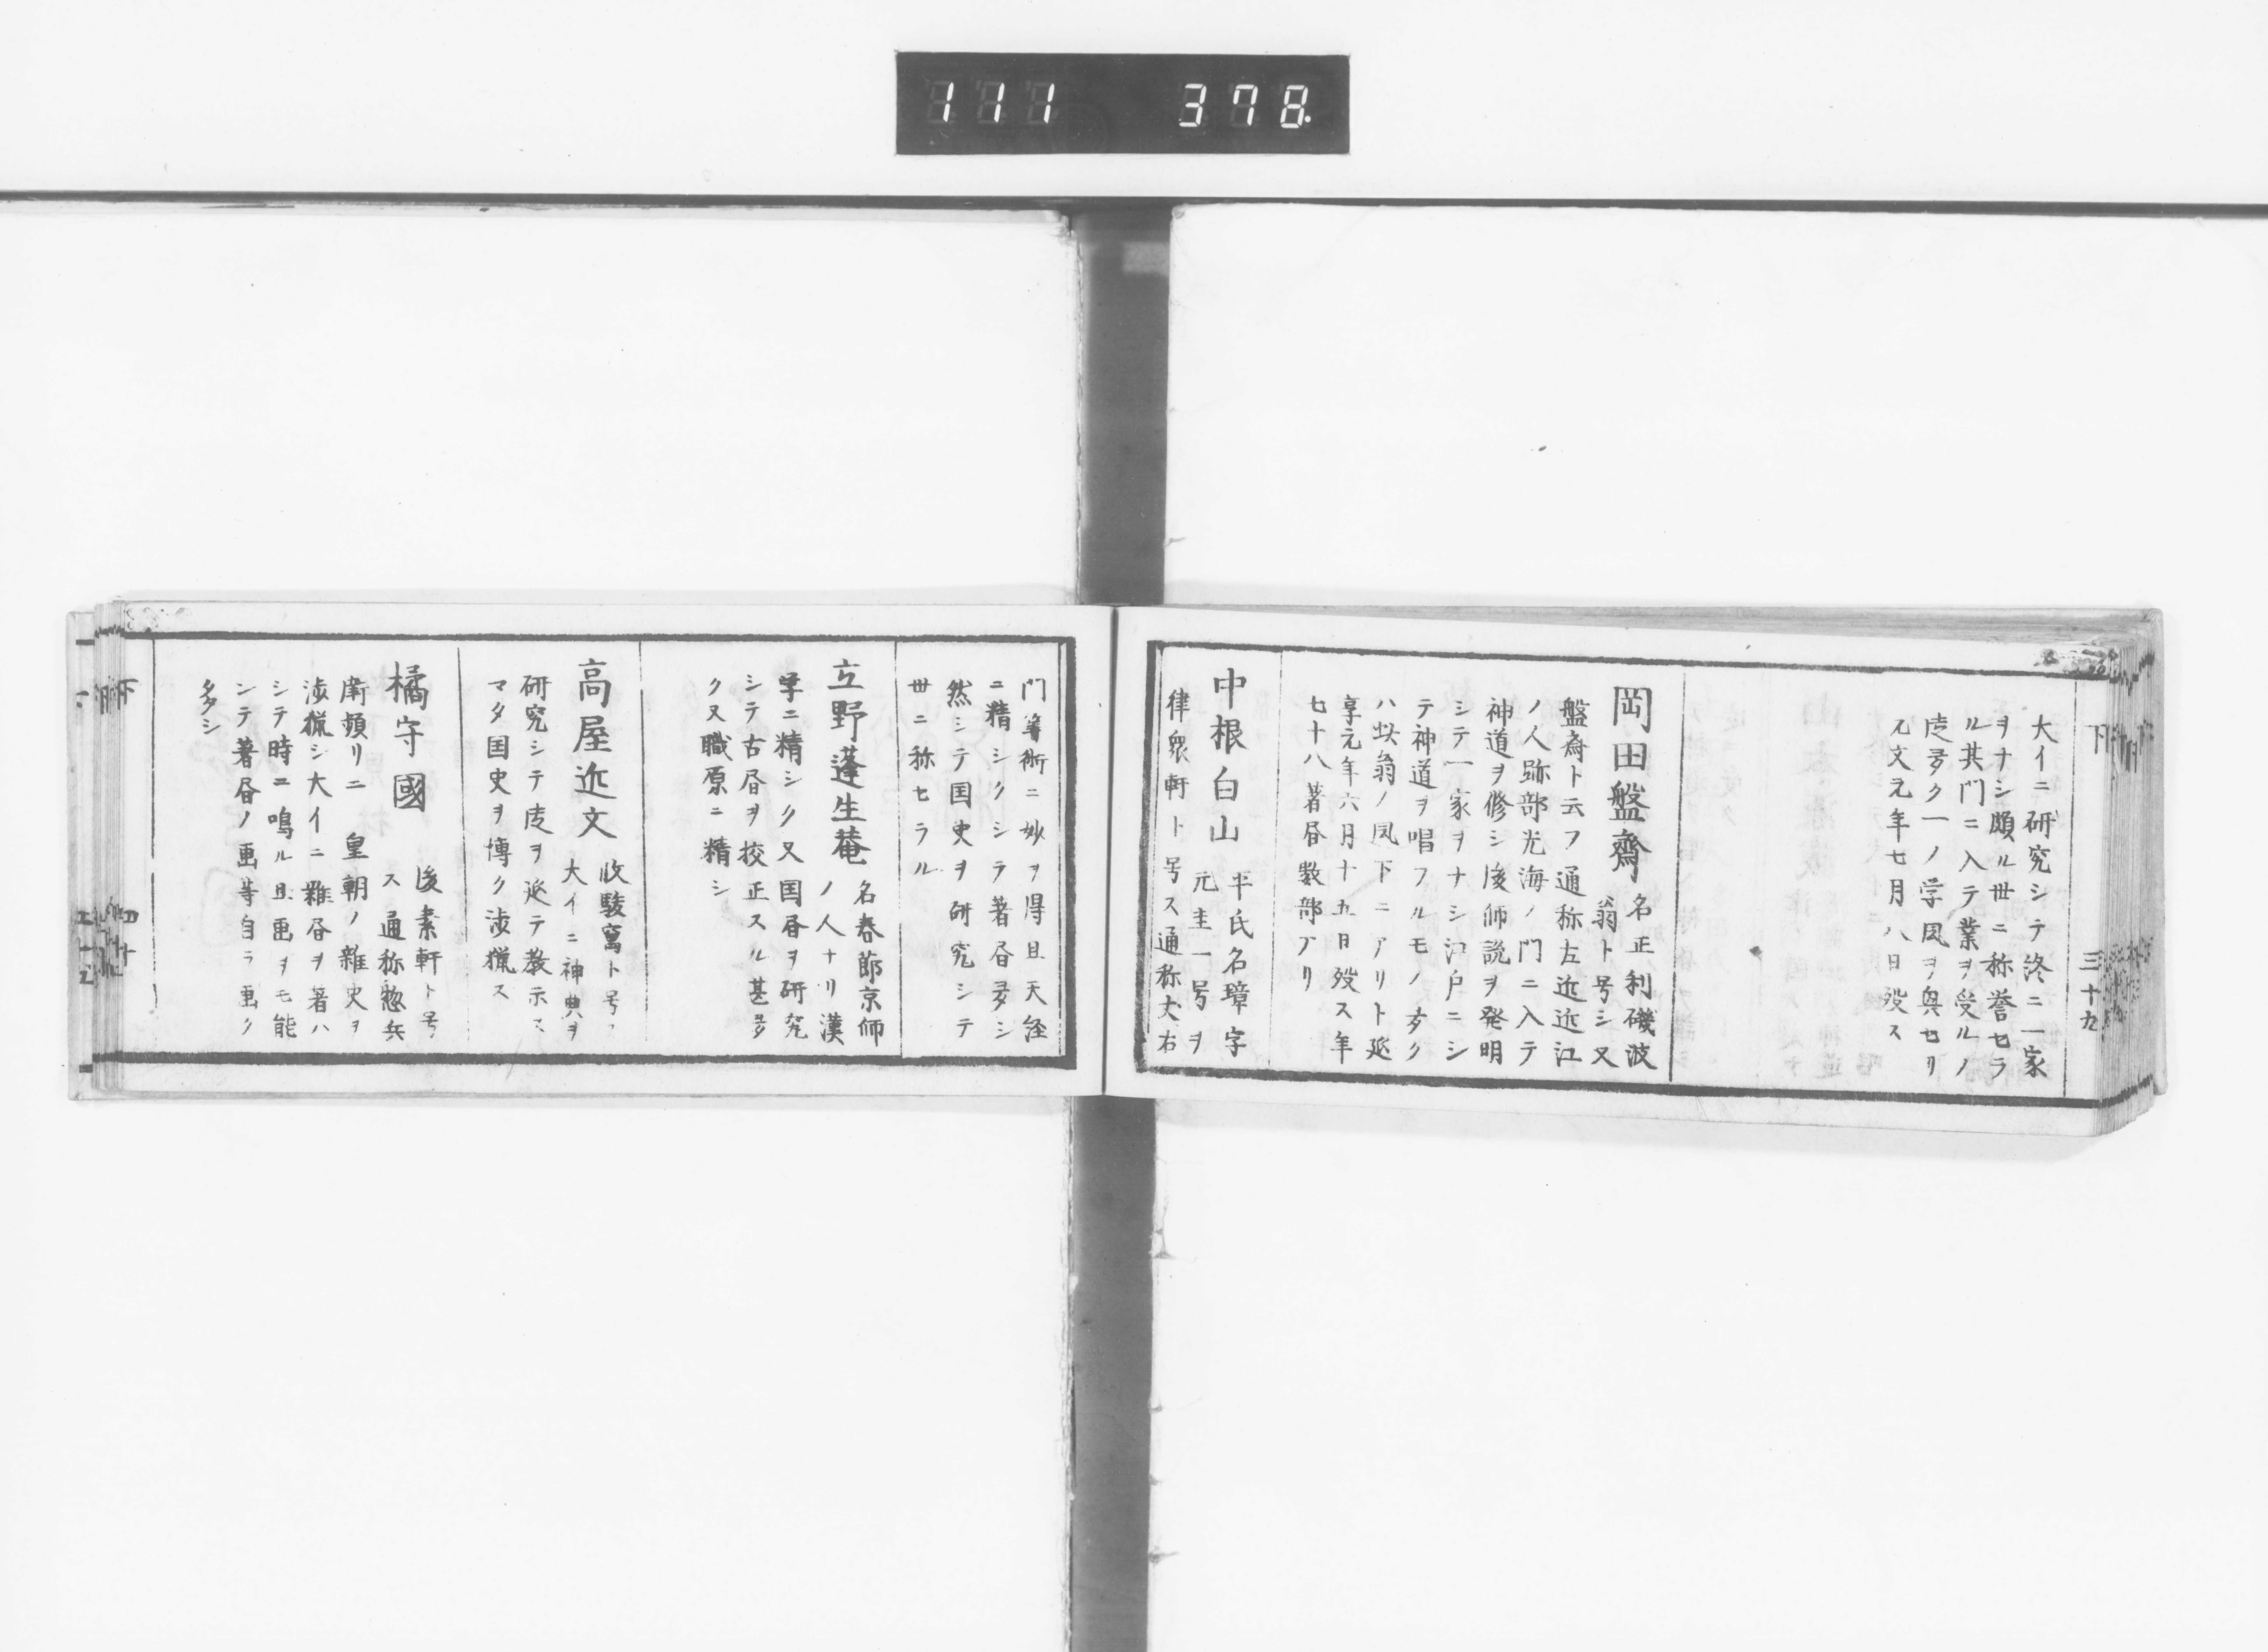 111 378
下
三十九
大イニ研究シテ終ニ一家
ヲナシ頗ル世ニ称誉セラ
ル其門ニ入テ業ヲ受ルノ
徒多ク一ノ学風ヲ興セリ
元文元年七月八日歿ス
岡田盤齋
名正利磯波
翁ト号シ又
盤斎ト云フ通称左近近江
ノ人跡部光海ノ門ニ入テ
神道ヲ修シ後師説ヲ発明
シテ一家ヲナシ江戸ニシ
テ神道ヲ唱フルモノ多ク
ハ此翁ノ風下ニアリト延
享元年六月十五日歿ス年
七十八著書数部アリ
中根白山
平氏名璋字
元圭一号ヲ
律衆軒ト号ス通称丈右
門算術ニ妙ヲ得且天経
ニ精シクシテ著書多シ
然シテ国史ヲ研究シテ
世ニ称セラル
立野蓬生菴
名春節京師
ノ人ナリ漢
学ニ精シク又国書ヲ研究
シテ古書ヲ挍正スル甚多
ク又職原ニ精シ
高屋近文
收駿窩ト号ス
大イニ神典ヲ
研究シテ徒ヲ延テ教示ス
マタ国史ヲ博ク渉猟ス
橘守國
後素軒ト号
ス通称惣兵
衛頻リニ 皇朝ノ雜史ヲ
渉猟シ大イニ雜書ヲ著ハ
シテ時ニ鳴ル且画ヲモ能
シテ著書ノ画等自ラ画ク
多シ
下
四十